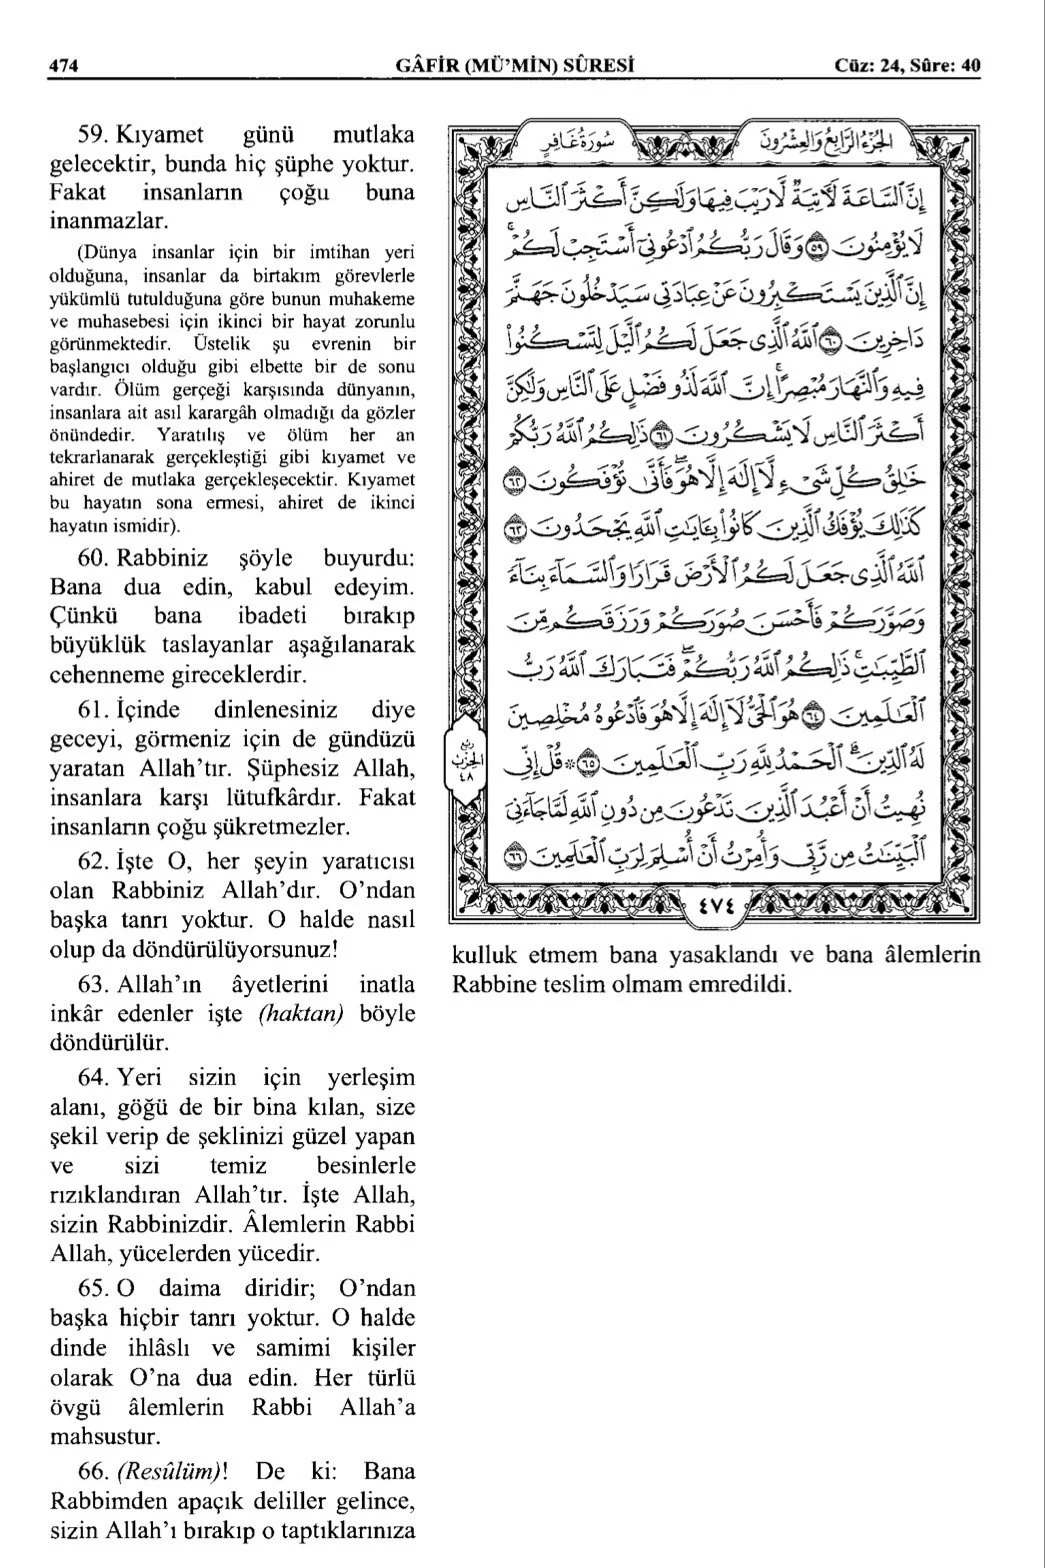 474 GÂFİR (MÜ’MİN) SÛRESİ Cüz: 24, Sûre: 40
59. Kıyamet günü mutlaka
gelecektir, bunda hiç şüphe yoktur.
Fakat insanların çoğu buna
inanmazlar.
(Dünya insanlar için bir imtihan yeri
olduğuna, insanlar da birtakım görevlerle
yükümlü tutulduğuna göre bunun muhakeme
ve muhasebesi için ikinci bir hayat zorunlu
görünmektedir. Üstelik şu evrenin bir
başlangıcı olduğu gibi elbette bir de sonu
vardır. Ölüm gerçeği karşısında dünyanın,
insanlara ait asıl karargâh olmadığı da gözler
önündedir. Yaratılış ve ölüm her an
tekrarlanarak gerçekleştiği gibi kıyamet ve
ahiret de mutlaka gerçekleşecektir. Kıyamet
bu hayatın sona ermesi, ahiret de ikinci
hayatın ismidir).
60. Rabbiniz şöyle buyurdu:
Bana dua edin, kabul edeyim.
Çünkü bana ibadeti bırakıp
büyüklük taslayanlar aşağılanarak
cehenneme gireceklerdir.
61. İçinde dinlenesiniz diye
geceyi, görmeniz için de gündüzü
yaratan Allah’tır. Şüphesiz Allah,
insanlara karşı lütufkârdır. Fakat
insanların çoğu şükretmezler.
62. İşte O, her şeyin yaratıcısı
olan Rabbiniz Allah’dır. O’ndan
başka tanrı yoktur. O halde nasıl
olup da döndürülüyorsunuz!
63. Allah’ın âyetlerini inatla
inkâr edenler işte (haktan) böyle
döndürülür.
64. Yeri sizin için yerleşim
alanı, göğü de bir bina kılan, size
şekil verip de şeklinizi güzel yapan
ve sizi temiz besinlerle
rızıklandıran Allah’tır. İşte Allah,
sizin Rabbinizdir. Âlemlerin Rabbi
Allah, yücelerden yücedir.
65. O daima diridir; O’ndan
başka hiçbir tanrı yoktur. O halde
dinde ihlâslı ve samimi kişiler
olarak O’na dua edin. Her türlü
övgü âlemlerin Rabbi Allah’a
mahsustur.
66. (Resûlüm)! De ki: Bana
Rabbimden apaçık deliller gelince,
sizin Allah’ı bırakıp o taptıklarınıza
الجزء الرابع والعشرون سورة غافر
إِنَّ ٱلسَّاعَةَ لَأٓتِيَةٌ لَّا رَيْبَ فِيهَا وَلَٰكِنَّ أَكْثَرَ ٱلنَّاسِ
لَا يُؤْمِنُونَ ٥٩ وَقَالَ رَبُّكُمُ ٱدْعُونِىٓ أَسْتَجِبْ لَكُمْ ۚ
إِنَّ ٱلَّذِينَ يَسْتَكْبِرُونَ عَنْ عِبَادَتِى سَيَدْخُلُونَ جَهَنَّمَ
دَاخِرِينَ ٦٠ ٱللَّهُ ٱلَّذِى جَعَلَ لَكُمُ ٱلَّيْلَ لِتَسْكُنُوا۟
فِيهِ وَٱلنَّهَارَ مُبْصِرًا ۚ إِنَّ ٱللَّهَ لَذُو فَضْلٍ عَلَى ٱلنَّاسِ وَلَٰكِنَّ
أَكْثَرَ ٱلنَّاسِ لَا يَشْكُرُونَ ٦١ ذَٰلِكُمُ ٱللَّهُ رَبُّكُمْ
خَٰلِقُ كُلِّ شَىْءٍ لَّآ إِلَٰهَ إِلَّا هُوَ ۖ فَأَنَّىٰ تُؤْفَكُونَ ٦٢
كَذَٰلِكَ يُؤْفَكُ ٱلَّذِينَ كَانُوا۟ بِـَٔايَٰتِ ٱللَّهِ يَجْحَدُونَ ٦٣
ٱللَّهُ ٱلَّذِى جَعَلَ لَكُمُ ٱلْأَرْضَ قَرَارًا وَٱلسَّمَآءَ بِنَآءً
وَصَوَّرَكُمْ فَأَحْسَنَ صُوَرَكُمْ وَرَزَقَكُم مِّنَ
ٱلطَّيِّبَٰتِ ۚ ذَٰلِكُمُ ٱللَّهُ رَبُّكُمْ ۖ فَتَبَارَكَ ٱللَّهُ رَبُّ
ٱلْعَٰلَمِينَ ٦٤ هُوَ ٱلْحَىُّ لَآ إِلَٰهَ إِلَّا هُوَ فَٱدْعُوهُ مُخْلِصِينَ
لَهُ ٱلدِّينَ ۗ ٱلْحَمْدُ لِلَّهِ رَبِّ ٱلْعَٰلَمِينَ ٦٥ ۞ قُلْ إِنِّى
نُهِيتُ أَنْ أَعْبُدَ ٱلَّذِينَ تَدْعُونَ مِن دُونِ ٱللَّهِ لَمَّا جَآءَنِىَ
ٱلْبَيِّنَٰتُ مِن رَّبِّى وَأُمِرْتُ أَنْ أُسْلِمَ لِرَبِّ ٱلْعَٰلَمِينَ ٦٦
ربع
الحزب
٤٨
٤٧٤
kulluk etmem bana yasaklandı ve bana âlemlerin
Rabbine teslim olmam emredildi.